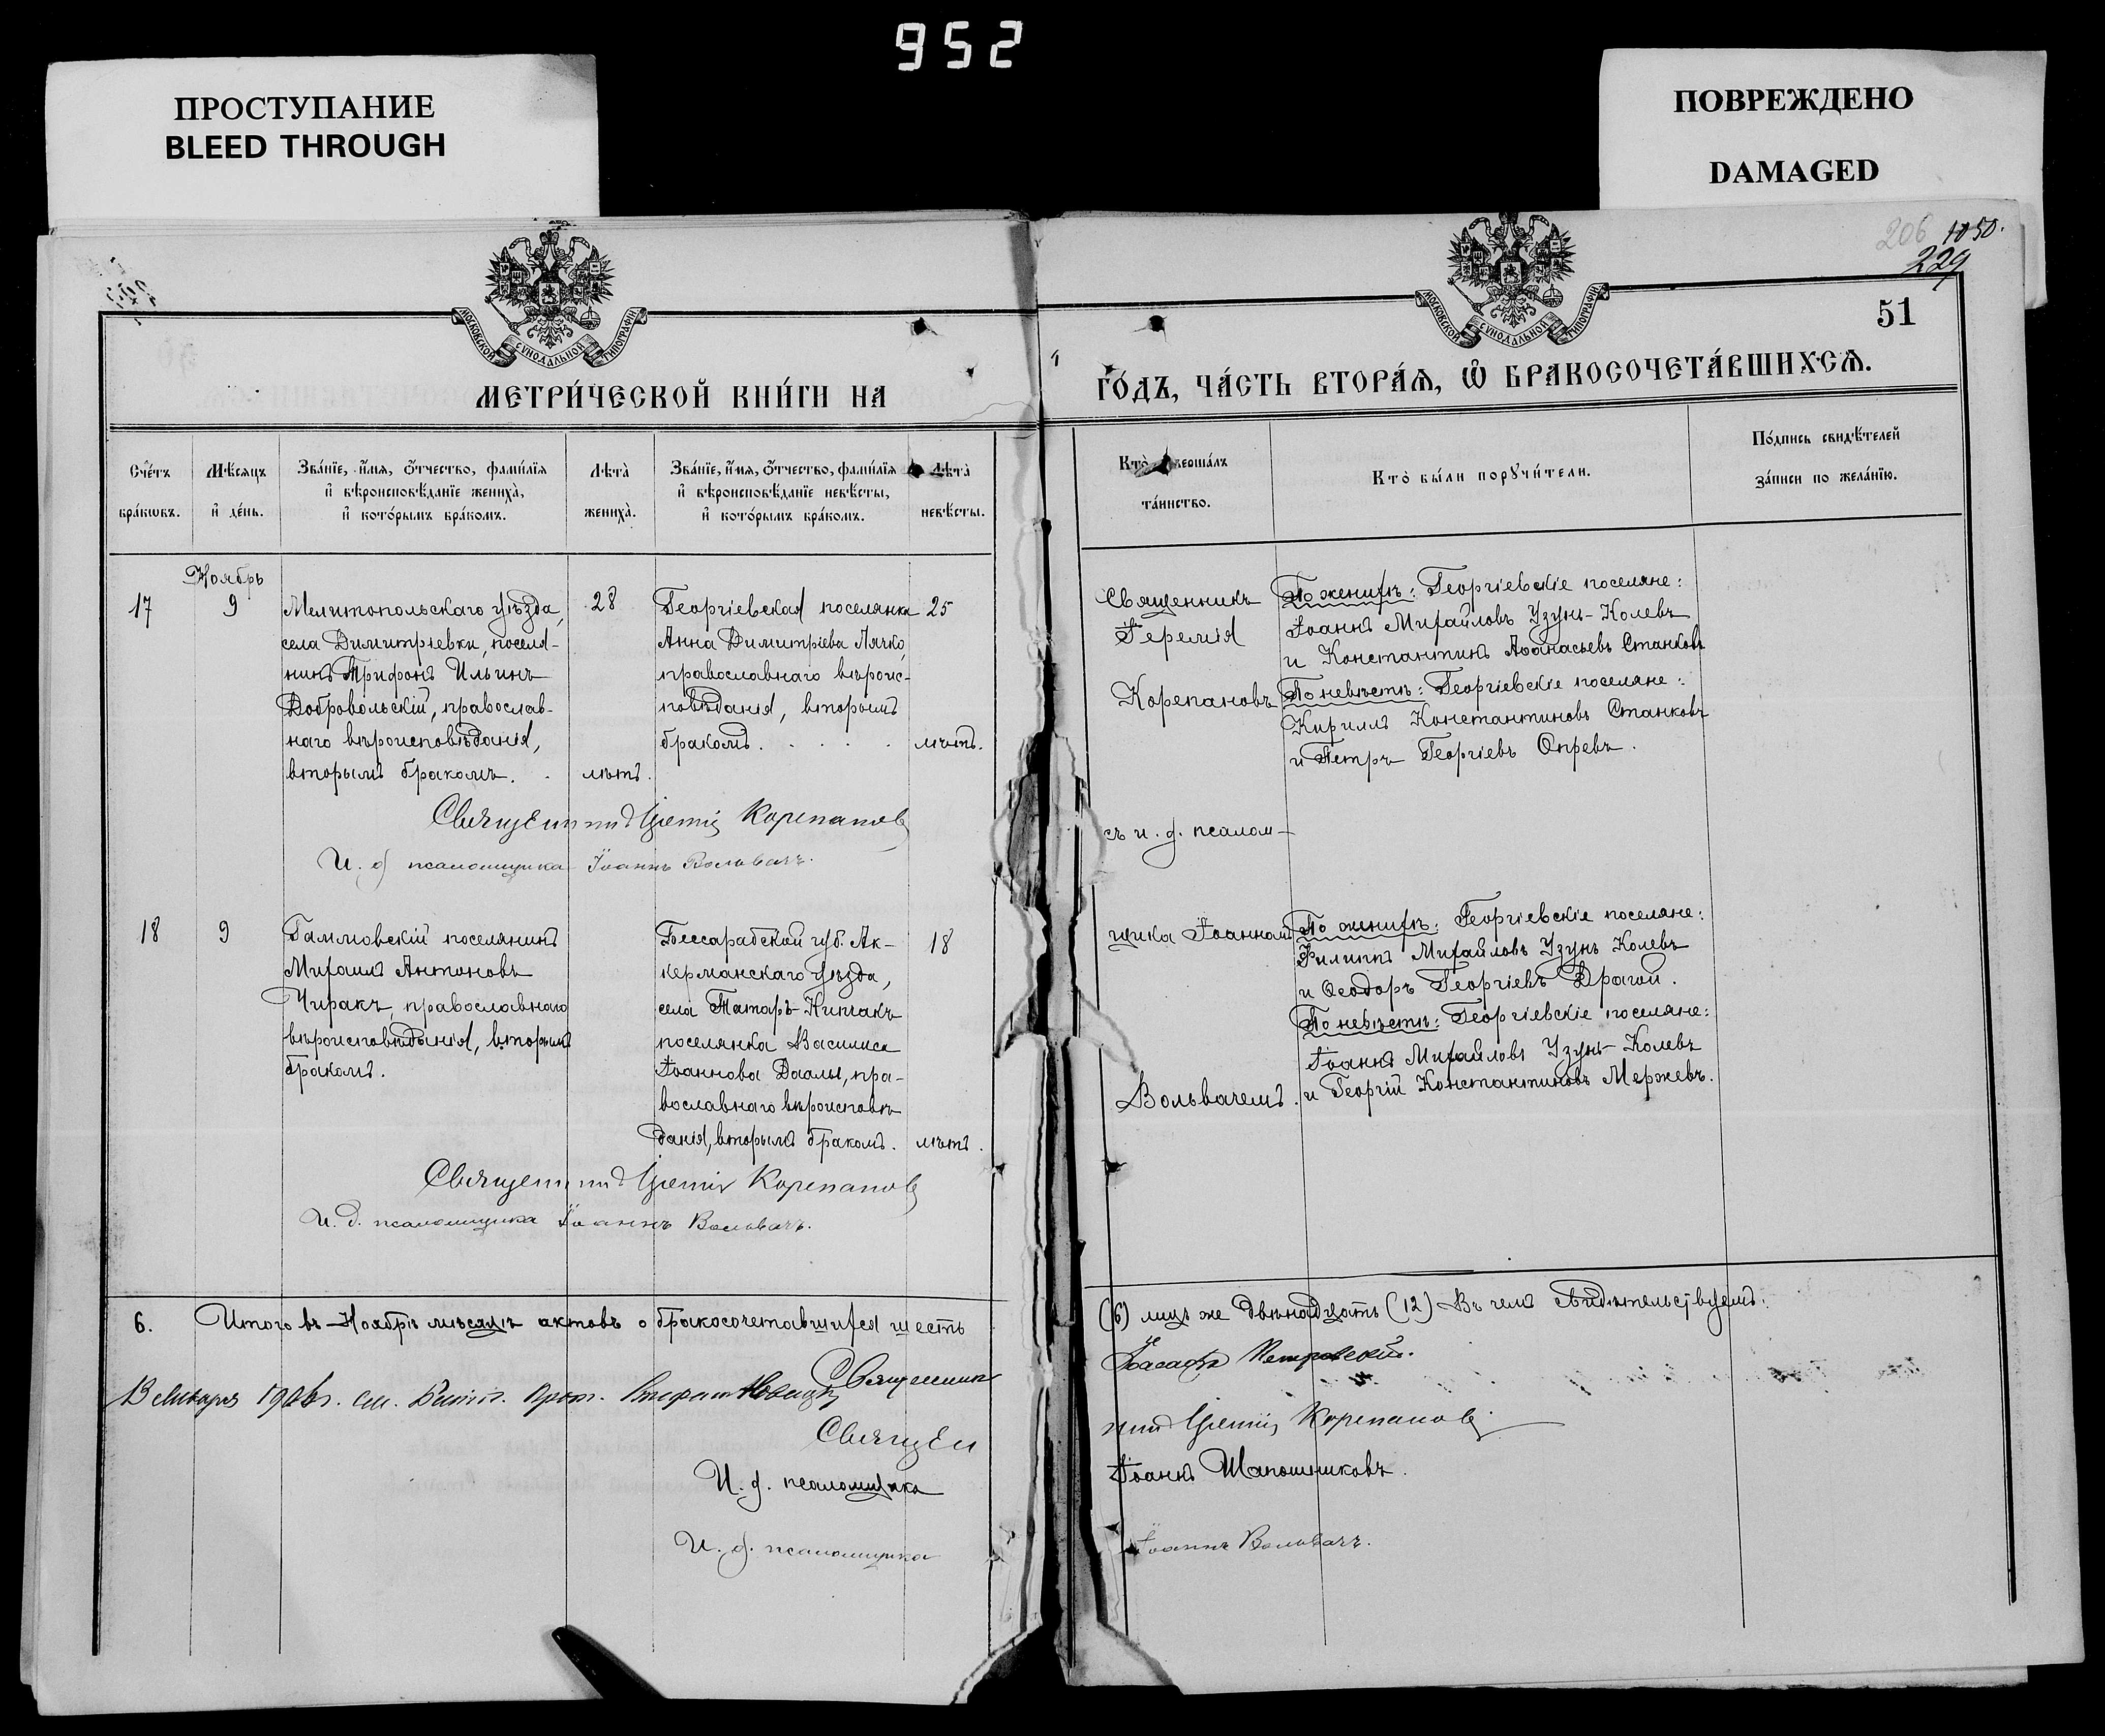 952
ПРОСТУПАНИЕ
BLEED THROUGH
ПОВРЕЖДЕНО
DAMAGED
206 1050.
229
51
МОСКОВСКОЙ СѴНОДАЛЬНОЙ ТИПОГРАФІИ
МОСКОВСКОЙ СѴНОДАЛЬНОЙ ТИПОГРАФІИ
МЕТРИ́ЧЕСКОЙ КНИ́ГИ НА
ГО́ДЪ, ЧА́СТЬ ВТОРА́Ѧ, Ѽ БРАКОСОЧЕТА́ВШИХСѦ.
Сче́тъ бра́кѡвъ.
Мѣ́сѧцъ и҆ де́нь.
Зва́нїе, и҆́мѧ, ѻ҆́тчество, фами́лїѧ
и҆ вѣроисповѣ́данїе жениха̀,
и҆ кото́рымъ бра́комъ.
Лѣта̀ жениха̀.
Зва́нїе, и҆́мѧ, ѻ҆́тчество, фами́лїѧ
и҆ вѣроисповѣ́данїе невѣ́сты,
и҆ кото́рымъ бра́комъ.
Лѣта̀ невѣ́сты.
Кто̀ соверша́лъ
та́инство.
Кто̀ бы́ли порꙋчи́тели.
По́дпись свидѣ́телей
за́писи по жела́нїю.
Ноябрь
17
9
Мелитопольскаго уѣзда,
села Димитріевки, поселя-
нинъ Трифонъ Ильинъ
Добровольскій, православ-
наго вѣроисповѣданія,
вторымъ бракомъ.
28
лѣтъ.
Георгіевская поселянка
Анна Димитріева Лячко,
православнаго вѣроис-
повѣданія, вторымъ
бракомъ.
25
лѣтъ.
Священникъ
Іеремія
Корепановъ
По женихѣ: Георгіевскіе поселяне:
Іоаннъ Михайловъ Узунъ-Колевъ
и Константинъ Аѳанасьевъ Станковъ
По невѣстѣ: Георгіевскіе поселяне:
Кириллъ Константиновъ Станковъ
и Петръ Георгіевъ Опревъ.
Священникъ Іеремія Корепановъ
И. д. псаломщика Іоаннъ Вольвачъ.
съ и. д. псалом-
18
9
Гаммовскій поселянинъ
Михаилъ Антоновъ
Чиракъ, православнаго
вѣроисповѣданія, вторымъ
бракомъ.
Бессарабской губ. Ак-
керманскаго уѣзда,
села Татаръ-Кипчакъ
поселянка Василиса
Іоаннова Даалы, пра-
вославнаго вѣроисповѣ
данія, вторымъ бракомъ.
18
лѣтъ.
щика Іоанномъ
Вольвачемъ.
По женихѣ: Георгіевскіе поселяне:
Филиппъ Михайловъ Узунъ Колевъ
и Ѳеодоръ Георгіевъ Драгой.
По невѣстѣ: Георгіевскіе поселяне:
Іоаннъ Михайловъ Узунъ-Колевъ
и Георгій Константиновъ Мержевъ.
Священникъ Іеремія Корепановъ
И. д. псаломщика Іоаннъ Вольвачъ.
6. Итого въ Ноябрѣ мѣсяцѣ актовъ о бракосочетавшихся шесть
(6) лицъ же двѣнадцать (12) Въ чемъ свидѣтельствуемъ:
Священникъ Іоасафъ Петровскій.
Января 190 г. см. Прот. Стефанъ
Священникъ Іеремія Корепановъ.
И. д. псаломщика Іоаннъ Шапошниковъ.
И. д. псаломщика Іоаннъ Вольвачъ.